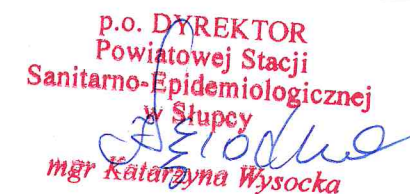 p.o. DYREKTOR
Powiatowej Stacji
Sanitarno-Epidemiologicznej
w Słupcy
mgr Katarzyna Wysocka